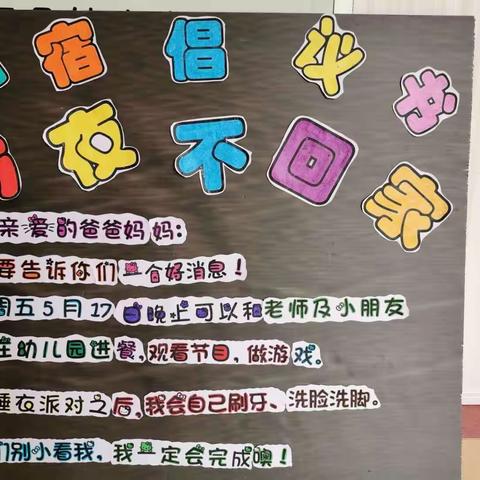 宿倡议书
夜不回家
亲爱的爸爸妈妈:
要告诉你们一个好消息!
周五5月17日晚上可以和老师及小朋友
在幼儿园进餐,观看节目,做游戏。
睡衣派对之后,我会自己刷牙、洗脸洗脚。
们别小看我,我一定会完成噢!